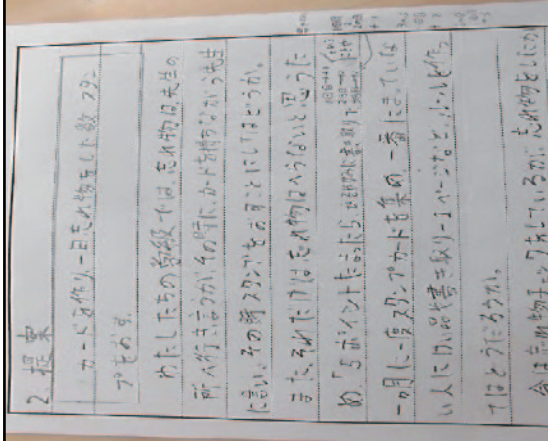 2. 提案
カードを作り、一日忘れ物をした数、スタン
プをおす。
わたしたちの学級では、忘れ物は、先生の
所へ行き言うが、その時に、カードを持ちながら先生
に言い、その時スタンプをおすことにしてはどうか。
また、それだけでは忘れ物はへらないと思うた
め、「5ポイントたまったら、
一か月に一度スタンプカードを集め、一番たまっていな
い人には、書き取り一ページなどルールを作っ
てはどうだろうか。
今は忘れ物チェックをしているが、忘れ物をしたか